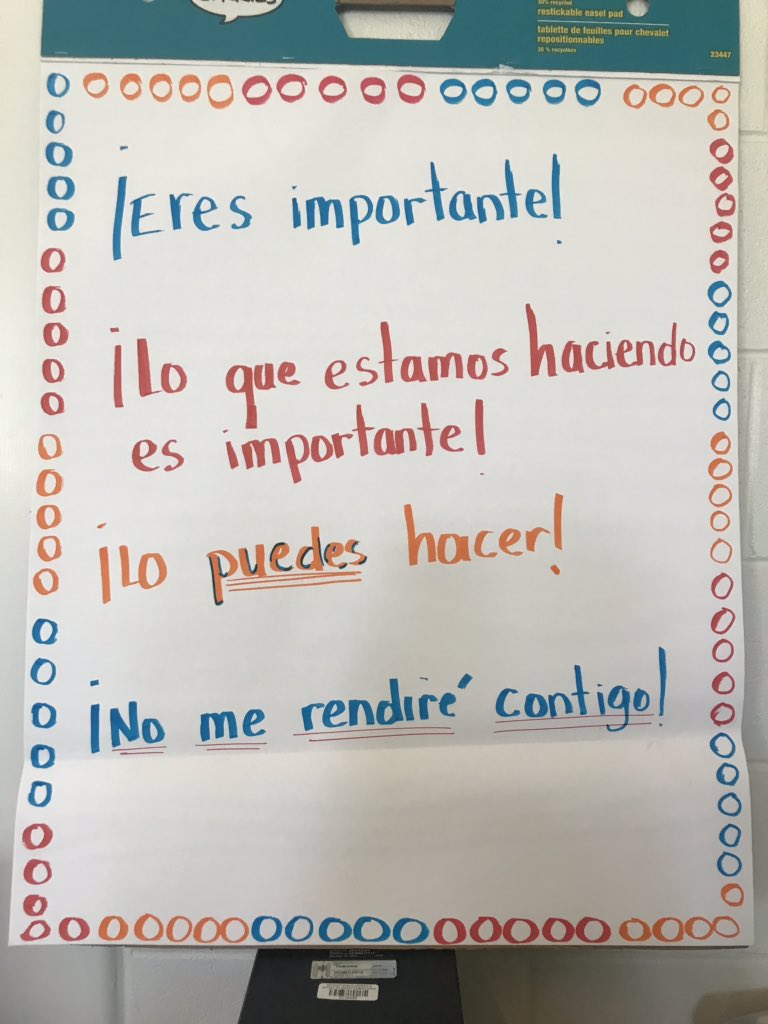 restickable easel pad
tablette de feuilles pour chevalet
repositionnables
30 % recyclées
23447
¡Eres importante!
¡Lo que estamos haciendo
es importante!
¡Lo puedes hacer!
¡No me rendiré contigo!